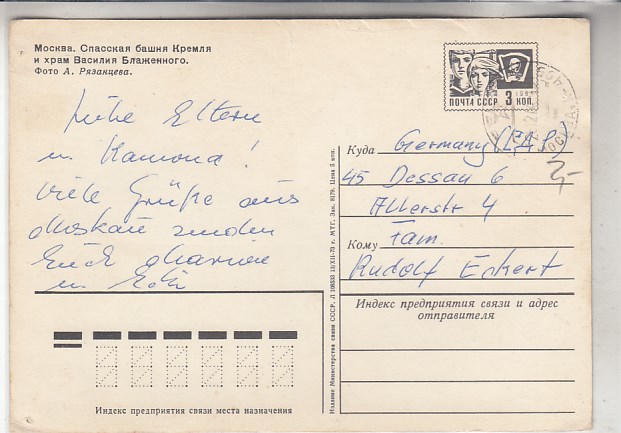 Москва. Спасская башня Кремля
и храм Василия Блаженного.
Фото А. Рязанцева.
Liebe Eltern
u. Ramona!
Viele Grüße aus
Moskau senden
Euch
u.
ПОЧТА СССР 3 КОП.
МОСКВА
Куда Germany
45 Dessau 6
4
Кому Fam.
Rudolf Eckert
Индекс предприятия связи и адрес
отправителя
Индекс предприятия связи места назначения
Издание Министерства связи СССР.
Цена 5 коп.